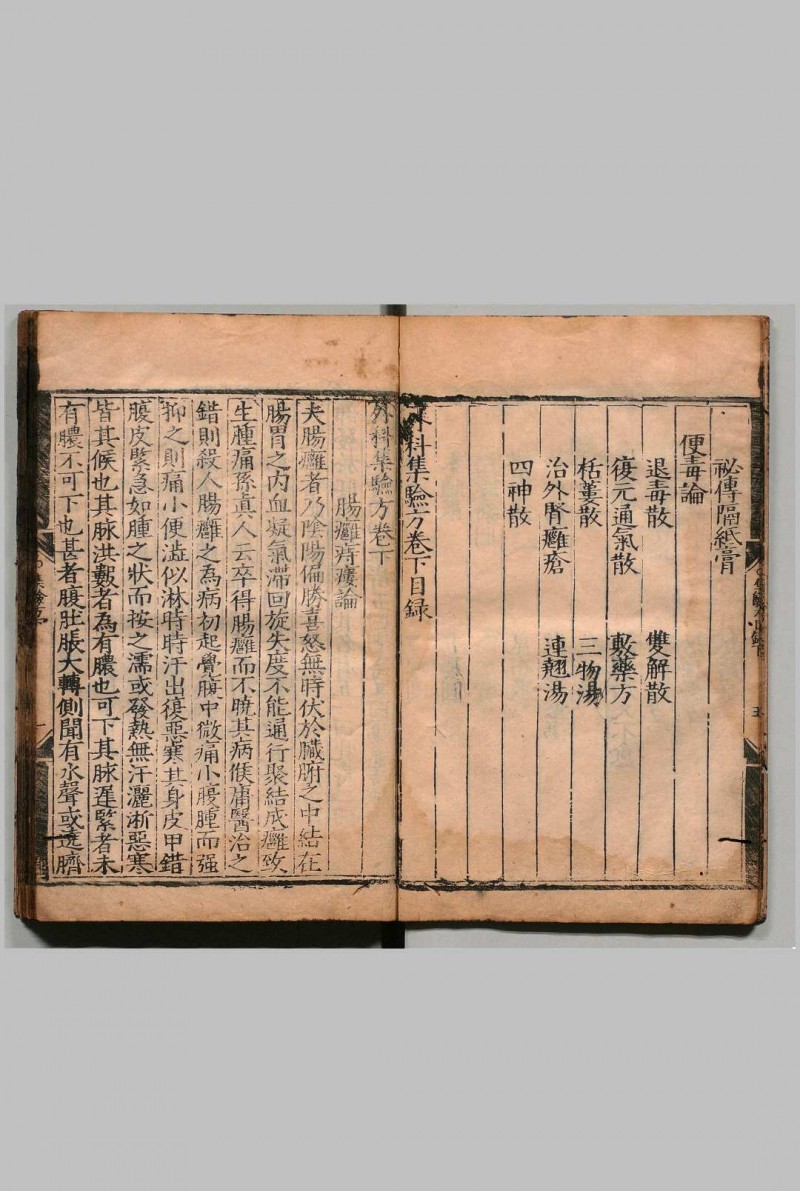 祕傳隔紙膏
便毒論
退毒散 雙解散
復元通氣散 敷藥方
栝蔞散 三物湯
治外腎癰瘡 連翹湯
四神散
外科集驗方卷下目録
外科集驗方卷下
腸癰痔瘻論
夫腸癰者乃陰陽偏勝喜怒無時伏於臟腑之中結在
腸胃之内血凝氣滯回旋失度不能通行聚結成癰致
生腫痛孫眞人云卒得腸癰而不曉其病候庸醫治之
錯則殺人腸癰之為病初起覺腹中微痛小腹腫而强
抑之則痛小便澁似淋時時汗出復惡寒其身皮甲錯
腹皮緊急如腫之狀而按之濡或發熱無汗灑淅惡寒
皆其候也其脉洪數者為有膿也可下其脉遲緊者未
有膿不可下也甚者腹肚脹大轉側聞有水聲或遶臍